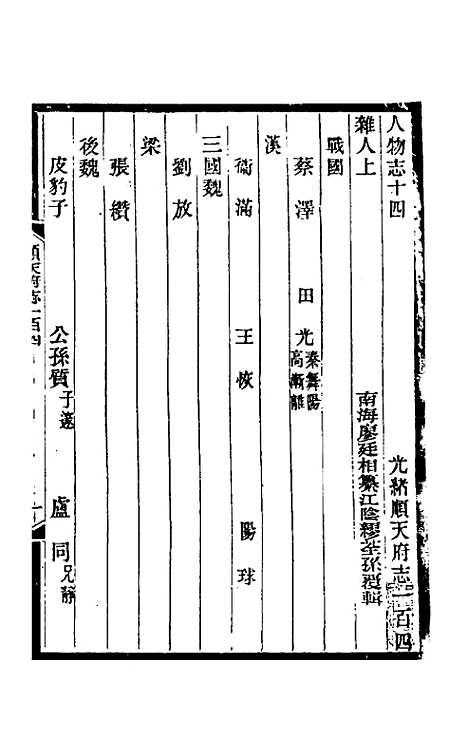 人物志十四 光緒順天府志一百四
雜人上 南海廖廷相纂江陰繆荃孫覆輯
戰國
蔡澤 田光秦舞陽高漸離
漢
衞滿 王恢 陽球
三國魏
劉放
梁
張纘
後魏
皮豹子 公孫質子邃 盧同兄靜
順天府志一百四